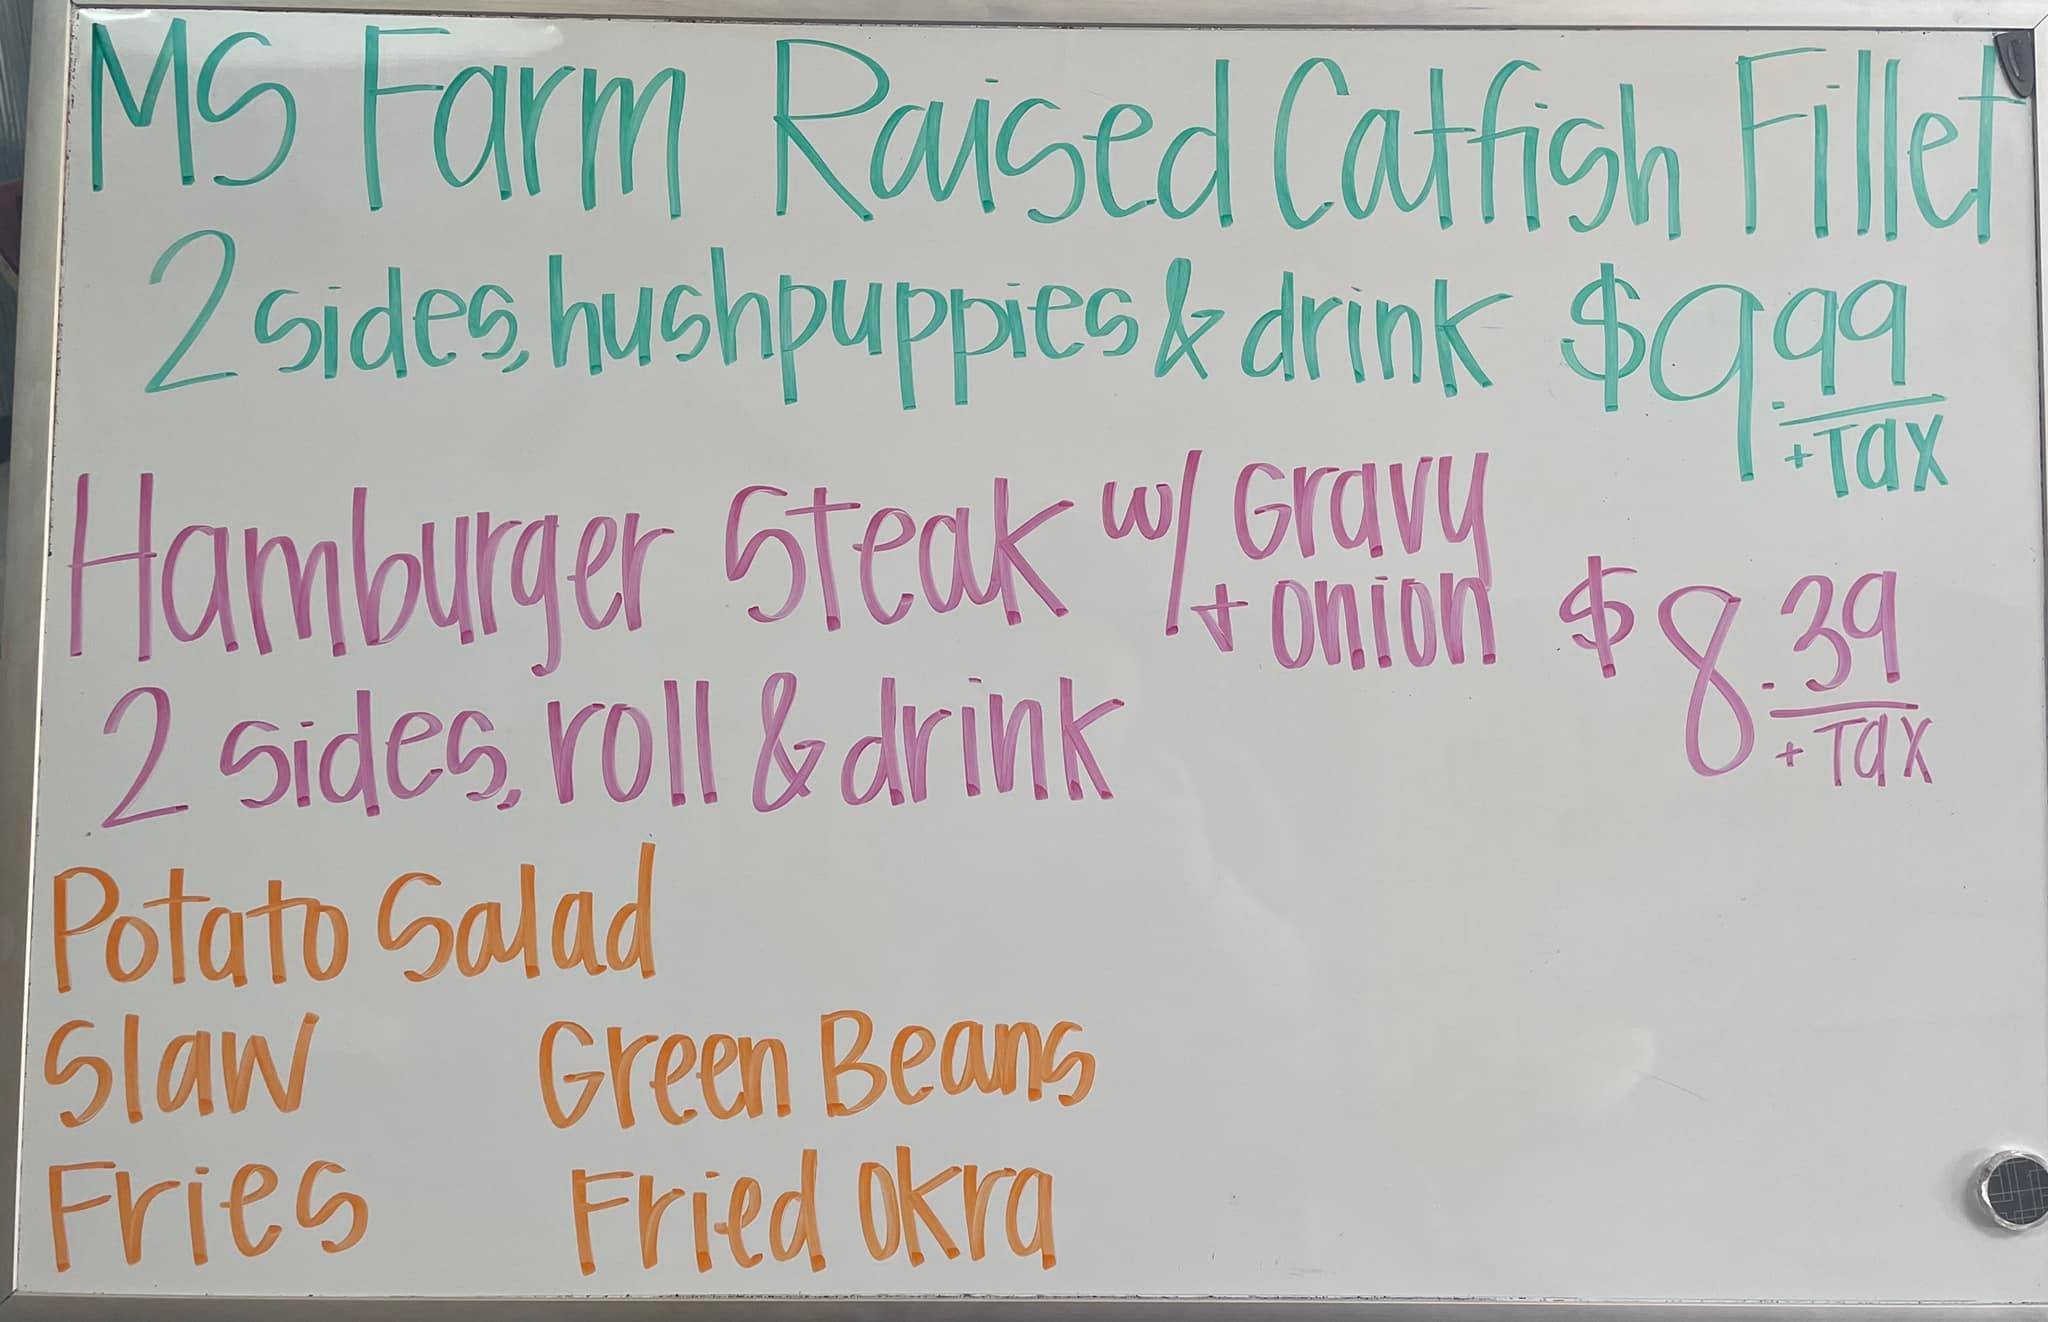 MS Farm Raised Catfish Fillet
2 sides, hushpuppies & drink $9.99
+Tax
Hamburger Steak w/ Gravy
+ onion $8.39
2 sides, roll & drink +Tax
Potato Salad
Slaw Green Beans
Fries Fried Okra